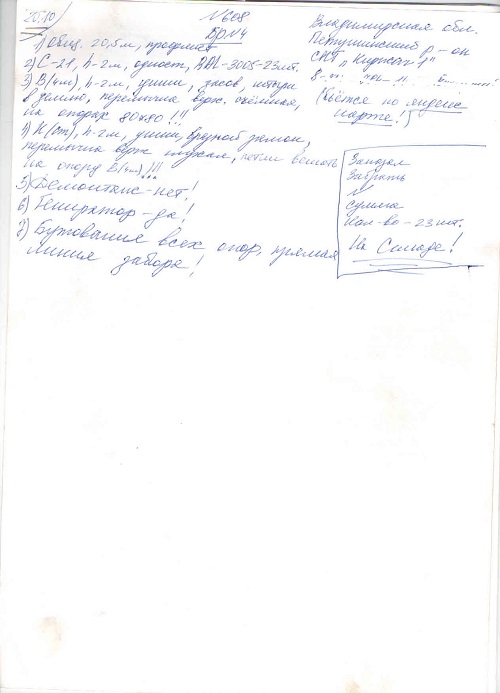 20.10
№608
БРИ4
1) Общ. 20,5 м, профлист
2) С-21, h-2м, одност, RAL-3005-23шт.
3) В(4м), h-2м, ушки, засов, штыри
в землю, перемычка верх. съёмная,
на опорах 80х80!!!
4) К(1м), h-2м, ушки, врезной замок,
перемычка верх глухая, петли вешать
на опору В(4м)!!!
5) Демонтаж-нет!
6) Генератор-да!
7) Бутование всех опор, прямая
линия забора!
Владимирская обл.
Петушинский р-он
СНТ "Киржач-1"
(бьётся по яндекс
карте!)
Заказал
Забрать
№
сумма
Кол-во-23 шт.
На Складе!